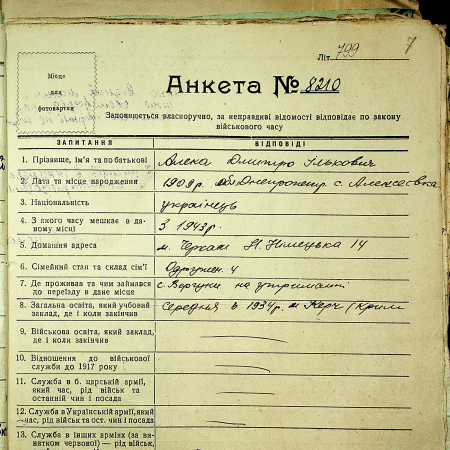 Літ 799
7
Місце
для
фотокартки
Анкета № 8210
Заповнюється власноручно, за неправдиві відомості відповідає по закону
військового часу
ЗАПИТАННЯ ВІДПОВІДІ
1. Прізвище, ім'я та по батькові Дмитро Ількович
2. Дата та місце народження 1909 р. обл. Днепропетр с. Алексеевка
3. Національність українець
4. З якого часу мешкає в да-
ному місці з 1943 р.
5. Домашня адреса м. Черкаси Н. Німецька 14
6. Сімейний стан та склад сім'ї Одружен. 4
7. Де проживав та чим займався
до переїзду в дане місце с. на утриманні
8. Загальна освіта, який учбовий
заклад, де і коли закінчив Середня в 1934 р. м. Керч (Крим
9. Військова освіта, який заклад,
де і коли закінчив
10. Відношення до військової
служби до 1917 року
11. Служба в б. царській армії,
який час, рід військ та
останній чин і посада
12. Служба в Українській армії, який
час, рід військ та ост. чин і посада
13. Служба в інших арміях (за ви-
нятком червоної) — рід військ,